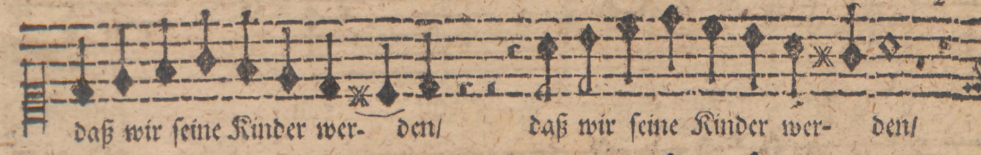 daß wir ſeine Kinder wer- den/ daß wir ſeine Kinder wer- den/